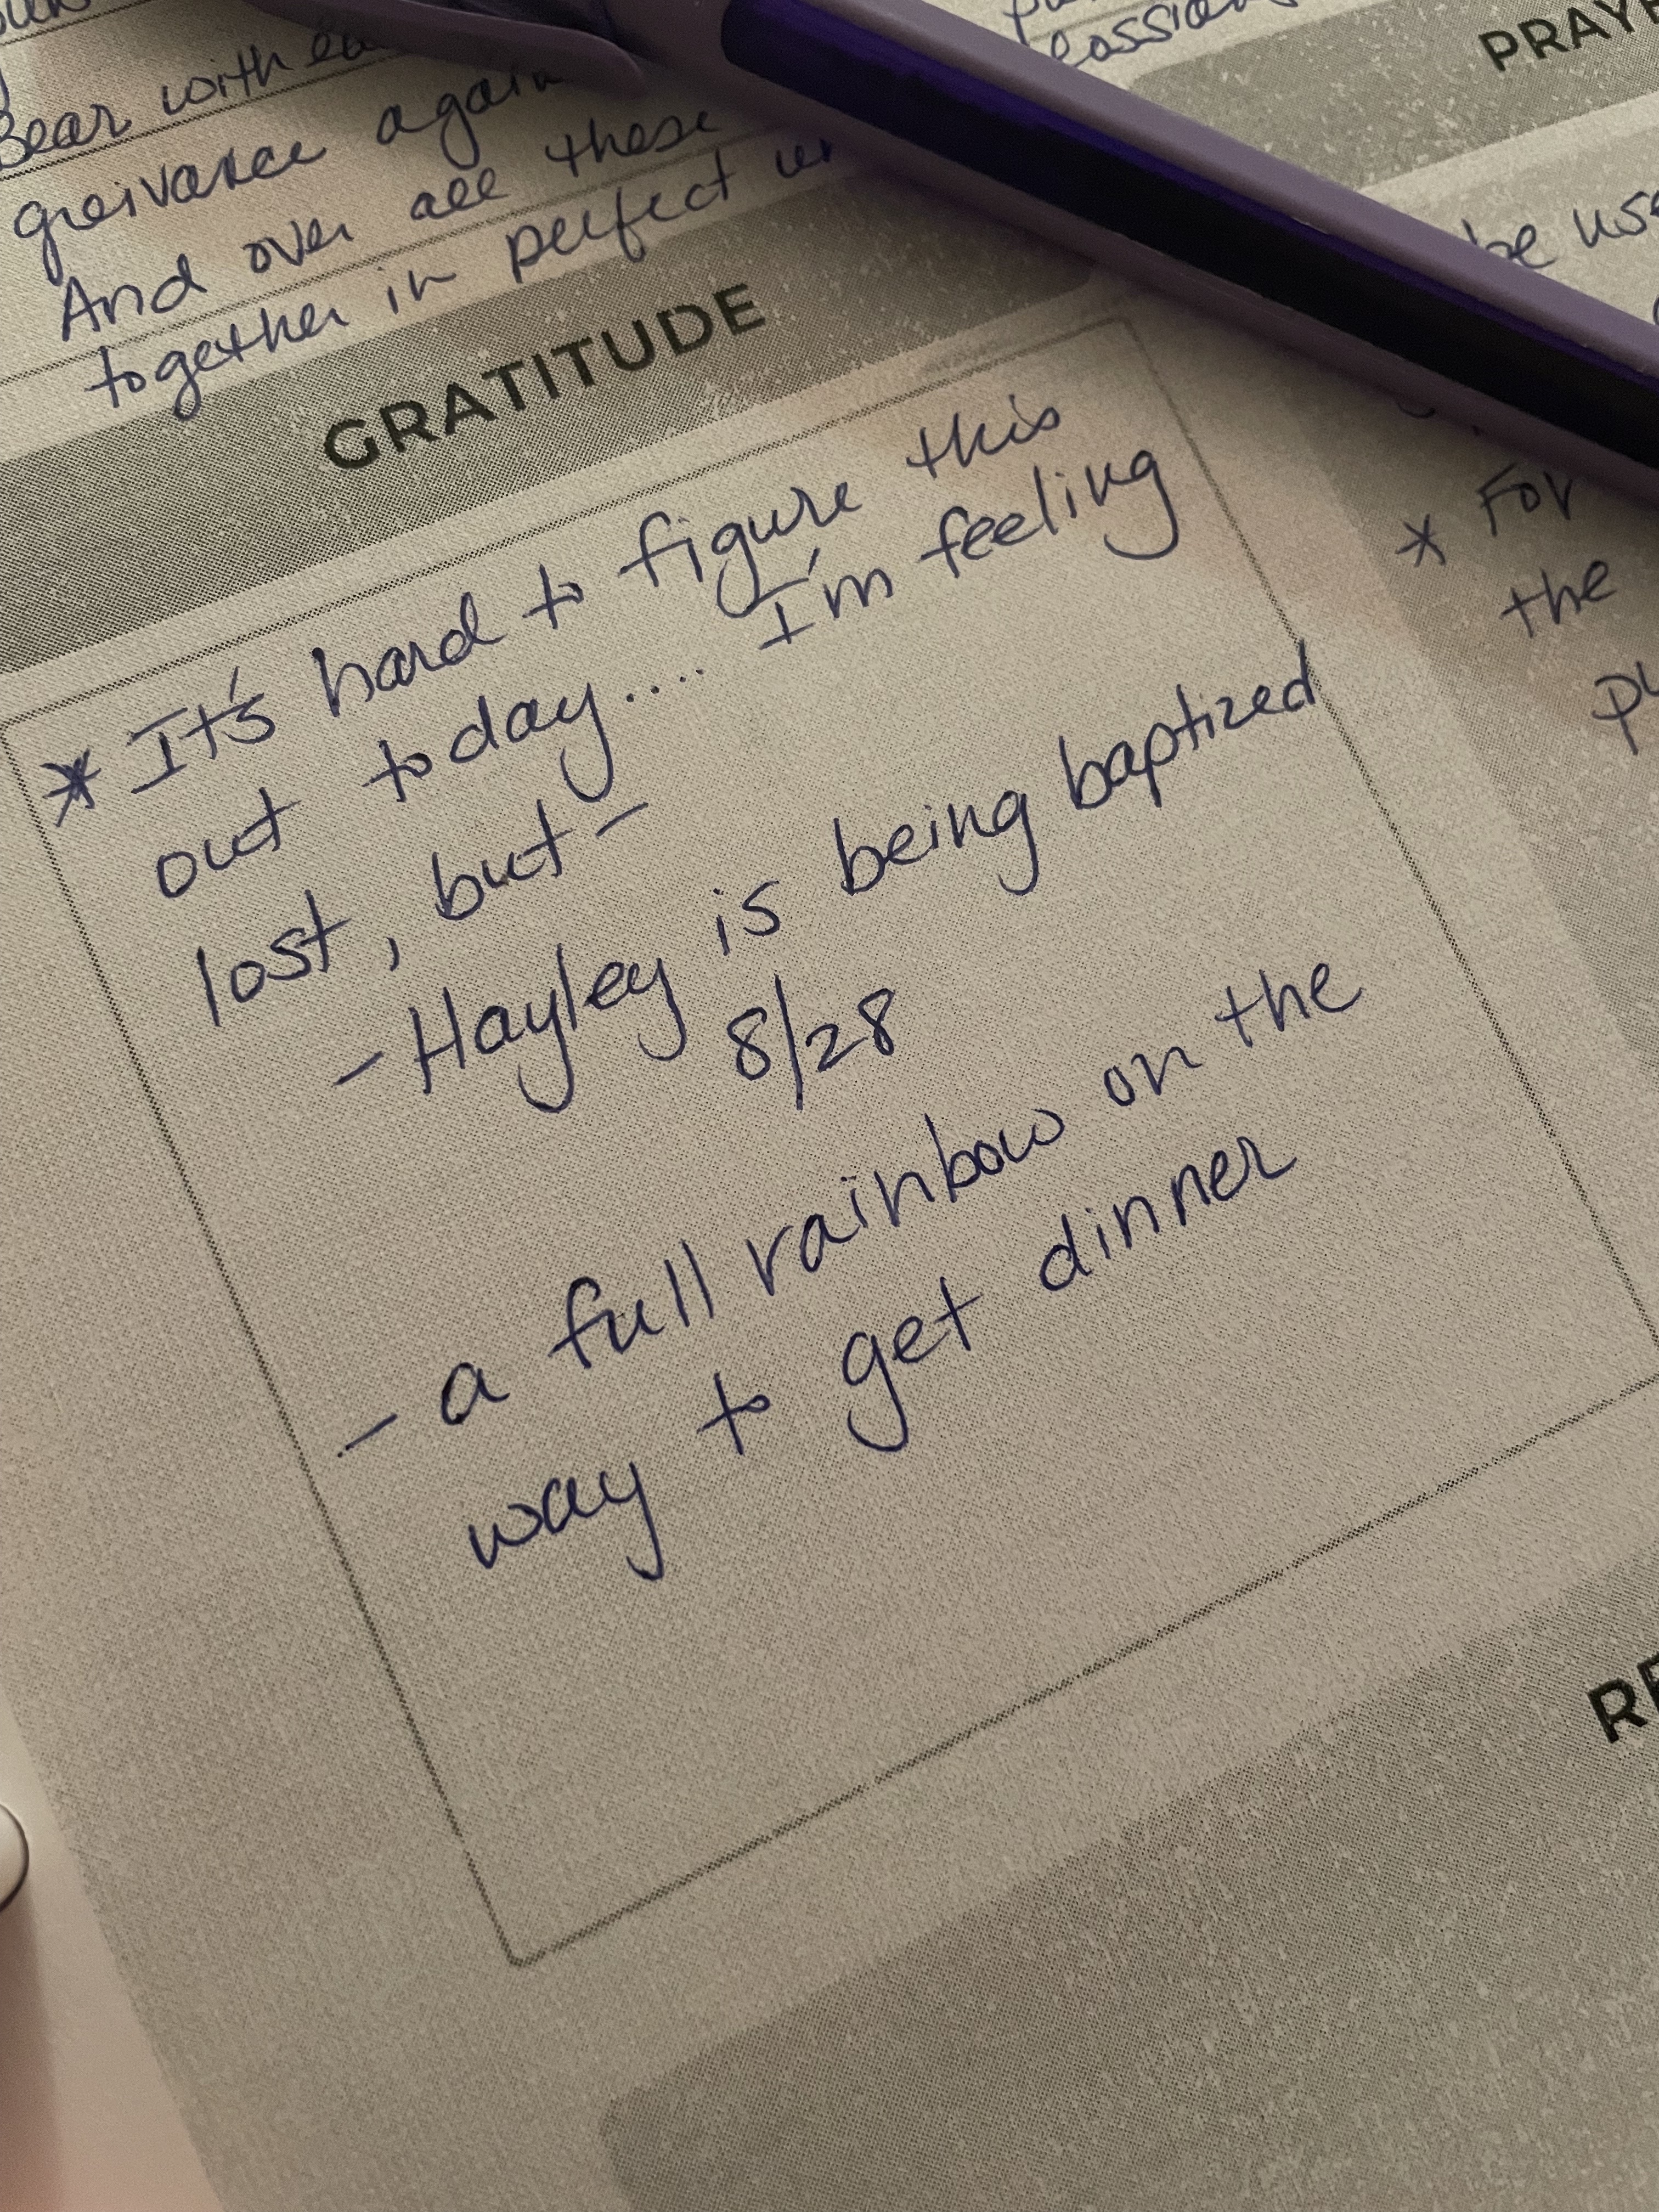 Bear with
greivance again
And over all these
together in perfect
GRATITUDE
* It's hard to figure this
out today.... I'm feeling
lost, but -
- Hayley is being baptized
8/28
- a full rainbow on the
way to get dinner
be
* For
the